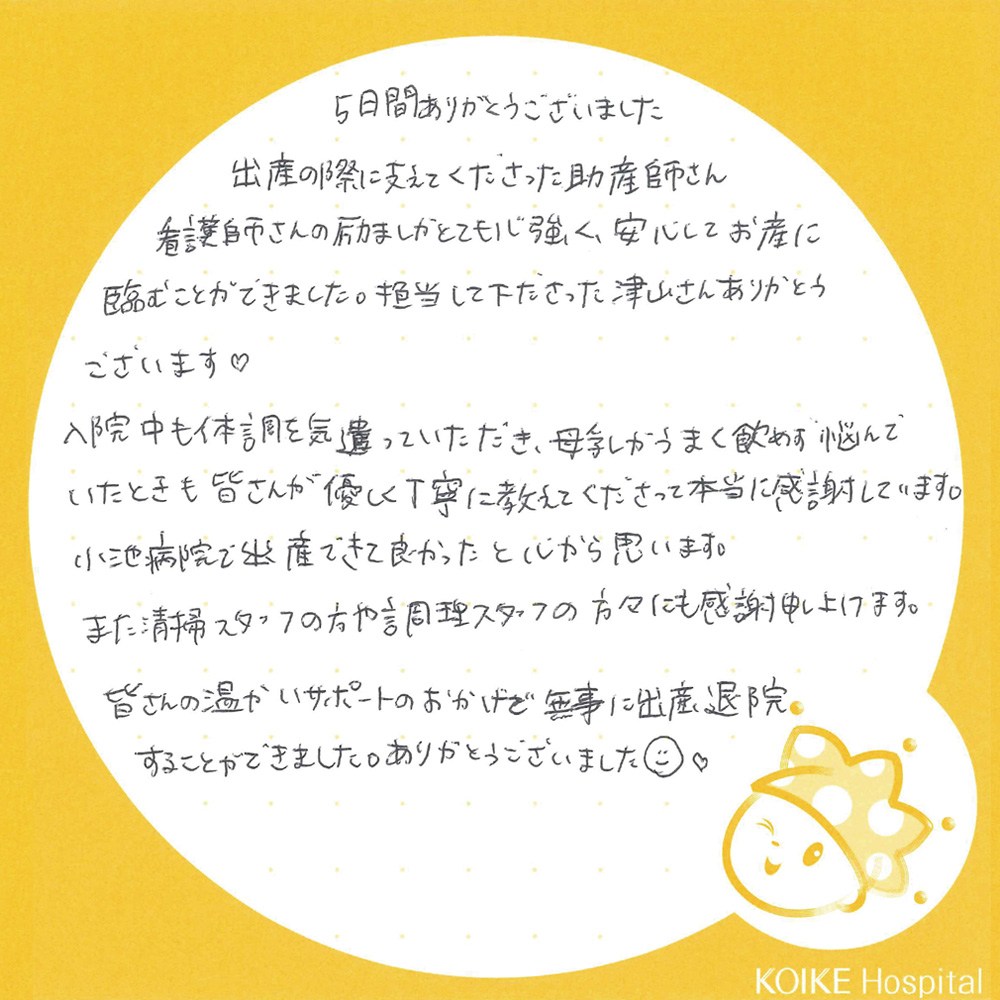 5日間ありがとうございました
出産の際に支えてくださった助産師さん
看護師さんの励ましがとても心強く、安心してお産に
臨むことができました。担当して下ださった津山さんありがとう
ございます♡
入院中も体調を気遣っていただき、母乳しがうまく飲めず悩んで
いたときも皆さんが優しく丁寧に教えてくださって本当に感謝しています。
小池病院で出産できて良かったと心から思います。
また清掃スタッフの方や調理スタッフの方々にも感謝申し上げます。
皆さんの温かいサポートのおかげで無事に出産退院
することができました。ありがとうございました☺♡
KOIKE Hospital